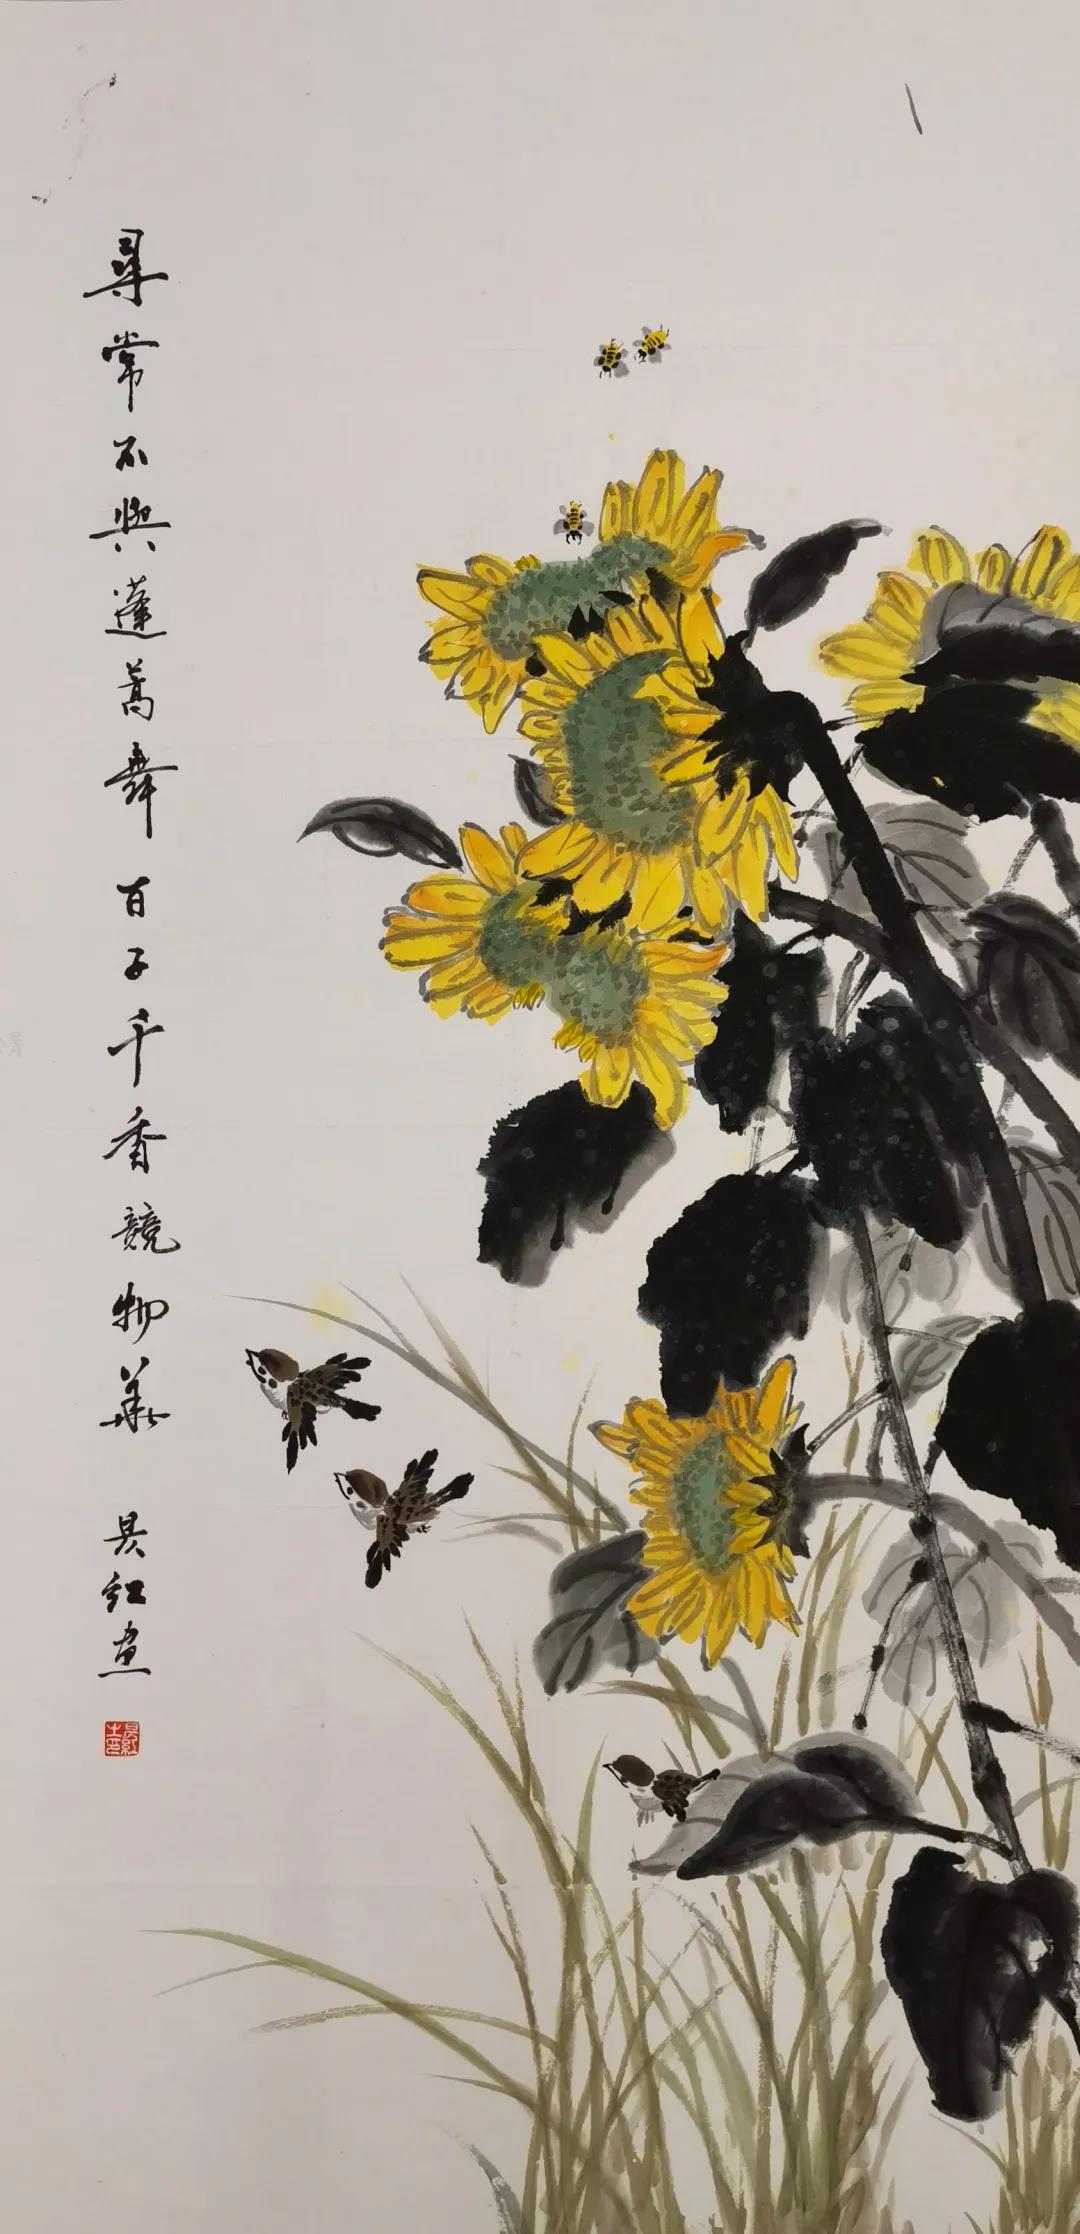 尋常不與蓬蒿舞百子千香競物華 吴红畫